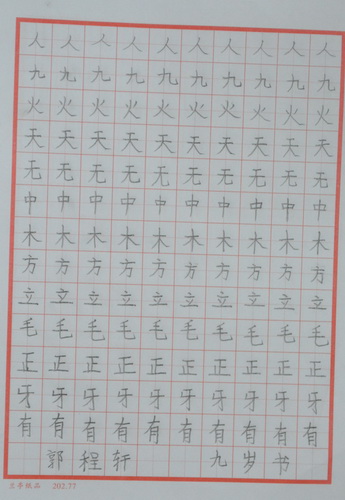 人人人人人人人人人人
九九九九九九九九九九
火火火火火火火火火火
天天天天天天天天天天
无无无无无无无无无无
中中中中中中中中中中
木木木木木木木木木木
方方方方方方方方方方
立立立立立立立立立立
毛毛毛毛毛毛毛毛毛毛
正正正正正正正正正正
牙牙牙牙牙牙牙牙牙牙
有有有有有有有有有有
郭程轩 九岁书
纸品 202.77